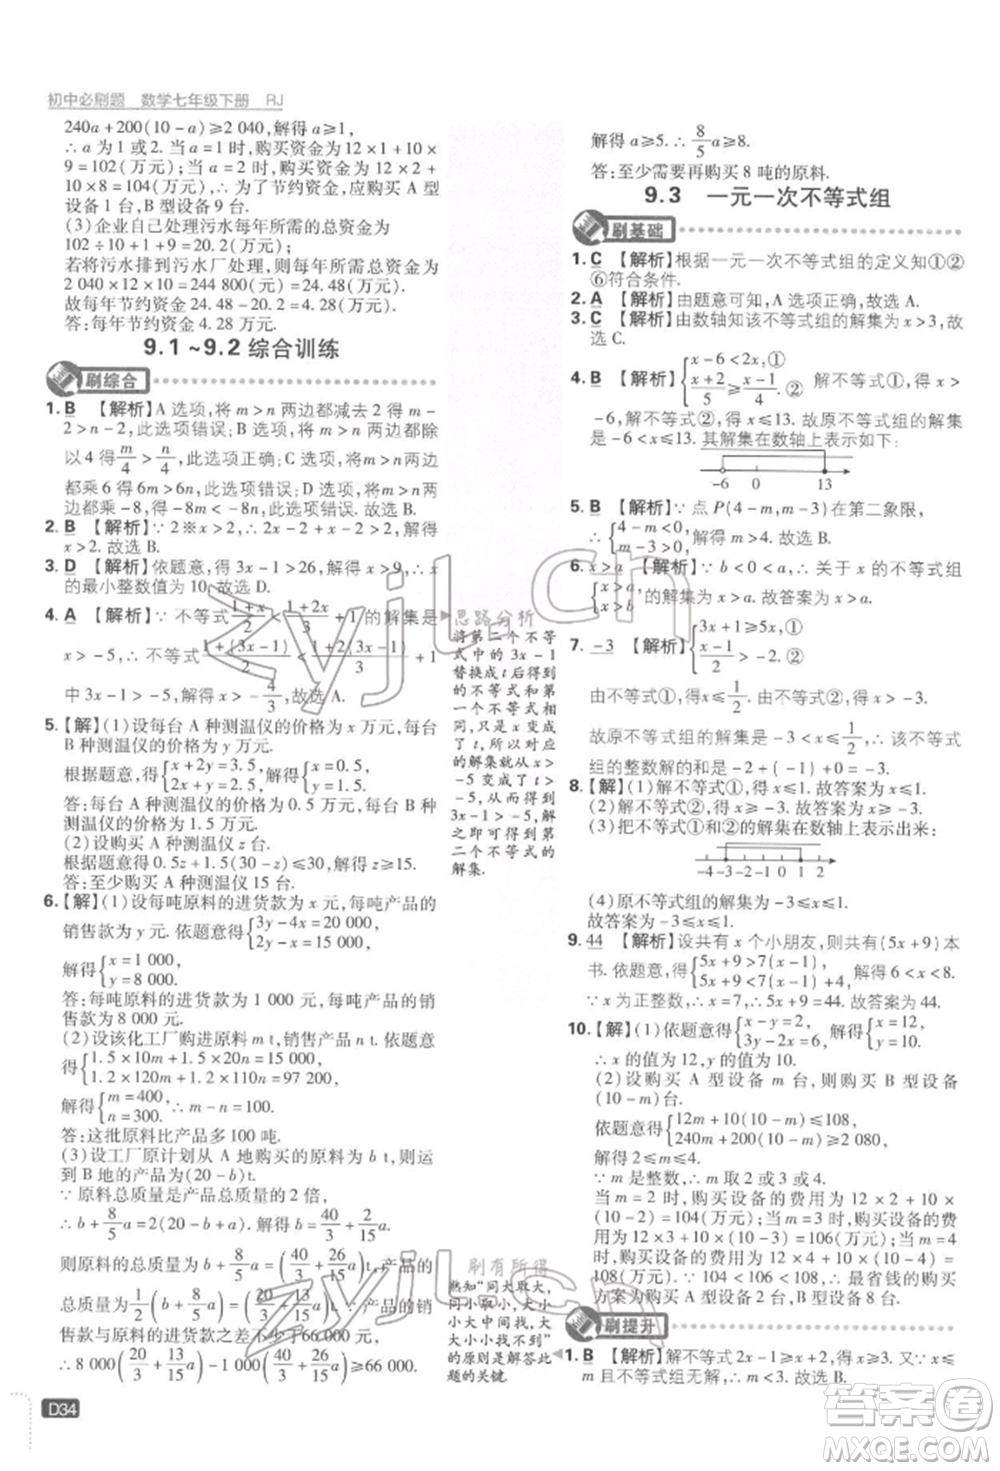 初中必刷题 数学七年级下册 RJ
240a+200(10-a)≥2 040,解得 a≥1,
∴ a 为 1 或 2. 当 a=1 时,购买资金为 12×1+10×
9=102(万元);当 a=2 时,购买资金为 12×2+
10×8=104(万元),∴ 为了节约资金,应购买 A 型
设备 1 台,B 型设备 9 台.
(3)企业自己处理污水每年所需的总资金为
102÷10+1+9=20.2(万元);
若将污水排到污水厂处理,每年所需资金为
2 040×12×10=244 800(元)=24.48(万元).
故每年节约资金 24.48-20.2=4.28(万元).
答:每年节约资金 4.28 万元.
9.1~9.2 综合训练
刷综合
1. B 【解析】A 选项,将 m>n 两边都减去 2 得 m-
2>n-2,此选项错误;B 选项,将 m>n 两边都除
以 4 得 m/4>n/4,此选项正确;C 选项,将 m>n 两边都
乘 6 得 6m>6n,此选项错误;D 选项,将 m>n 两边
都乘-8,得-8m<-8n,此选项错误.故选 B.
2. B 【解析】∵ 2※x>2,∴ 2×2-x>2,解得
x<2. 故选 B.
3. D 【解析】依题意,得 3x-1>26,解得 x>9,∴ x
的最小整数值为 10,故选 D.
4. A 【解析】∵ 不等式(1+x)/2<(1+2x)/3+1 的解集是
x>-5,∴ 不等式(1+(3x-1))/2<(1+2(3x-1))/3+1
中 3x-1>-5,解得 x>-4/3,故选 A.
5. 【解】(1)设每台 A 种测温仪的价格为 x 万元,每台
B 种测温仪的价格为 y 万元.
根据题意,得{x+2y=3.5, 2x+y=2.5,解得{x=0.5, y=1.5.
答:每台 A 种测温仪的价格为 0.5 万元,每台 B 种
测温仪的价格为 1.5 万元.
(2)设购买 A 种测温仪 z 台.
根据题意得 0.5z+1.5(30-z)≤30,解得 z≥15.
答:至少购买 A 种测温仪 15 台.
6. 【解】(1)设每吨原料的进货款为 x 元,每吨产品的
销售款为 y 元. 依题意得{3y-4x=20 000, 2y-x=15 000,
解得{x=1 000, y=8 000.
答:每吨原料的进货款为 1 000 元,每吨产品的销
售款为 8 000 元.
(2)设该化工厂购进原料 m t,销售产品 n t. 依题意
得{1.5×10m+1.5×20n=15 000, 1.2×120m+1.2×110n=97 200,
解得{m=400, n=300.∴ m-n=100.
答:这批原料比产品多 100 吨.
(3)设工厂原计划从 A 地购买的原料为 b t,则运
到 B 地的产品为(20-b)t.
∵ 原料总质量是产品总质量的 2 倍,
∴ b+8/5a=2(20-b+a),解得 b=40/3+2/15a,
则原料的总质量为 b+8/5a=(40/3+2/15a)+8/5a,产品的
总质量为1/2(b+8/5a)=20/3+13/15a. ∵ 产品的销售款
与原料的进货款之差不少于 66 000 元,
∴ 8 000(20/3+13/15a)-1 000(40/3+26/15a)≥66 000,
思路分析
将第二个不等
式中的 3x-1
替换成 t 后得到
的不等式和第
一个不等式相
同,只是 x 变成
了 t,所以对应
的解集就从 x
>-5 变成了 t
>-5,从而得到
3x-1>-5,解
之即可得到第
二个不等式的
解集.
刷有所得
熟知"同大取大,
同小取小,大小
小大中间找,大
大小小找不到"
的原则是解答此
题的关键.
解得 a≥5. ∴ 8/5a≥8.
答:至少需要再购买 8 吨的原料.
9.3 一元一次不等式组
刷基础
1. C 【解析】根据一元一次不等式组的定义知①②
⑥符合条件.
2. A 【解析】由题意可知,A 选项正确,故选 A.
3. C 【解析】由数轴知该不等式组的解集为 x>3,故
选 C.
4. B 【解析】{x-6<2x,① (x+2)/5≥(x-1)/4. ② 解不等式①,得 x>
-6,解不等式②,得 x≤13. 故原不等式组的解集
是-6<x≤13. 其解集在数轴上表示如下:
-6 0 13
5. B 【解析】∵ 点 P(4-m,m-3)在第二象限,
∴{4-m<0, m-3>0,解得 m>4. 故选 B.
6. x>a 【解析】∵ b<0<a,∴ 关于 x 的不等式组
{x>a, x>b 的解集为 x>a. 故答案为 x>a.
7. -3 【解析】{3x+1≥5x,① (x-1)/2>-2,②
由不等式①,得 x≤1/2,由不等式②,得 x>-3.
故原不等式组的解集是-3<x≤1/2,∴ 该不等式
组的整数解的和是-2+(-1)+0=-3.
8. 【解】(1)解不等式①,得 x≤1. 故答案为 x≤1.
(2)解不等式②,得 x≥-3. 故答案为 x≥-3.
(3)把不等式①和②的解集在数轴上表示出来:
-4 -3 -2 -1 0 1 2
(4)原不等式组的解集为-3≤x≤1.
故答案为-3≤x≤1.
9. 44 【解析】设共有 x 个小朋友,则共有(5x+9)本
书. 依题意,得{5x+9>7(x-1), 5x+9<7(x-1)+3,解得 6.5<x<8.
∵ x 为正整数,∴ x=7,∴ 5x+9=44. 故答案为 44.
10. 【解】(1)依题意得{x-y=2, 3y-2x=6,解得{x=12, y=10.
∴ x 的值为 12,y 的值为 10.
(2)设购买 A 型设备 m 台,则购买 B 型设备
(10-m)台.
依题意得{12m+10(10-m)≤108, 240m+200(10-m)≥2 080,
∴ 2≤m≤4. ∵ m 是整数,∴ m 取 2 或 3 或 4.
当 m=2 时,购买设备的费用为 12×2+10×
(10-2)=104(万元);当 m=3 时,购买设备的
108(万元). ∵ 104<106<108,∴ 最省钱的购买
方案为 A 型设备 2 台,B 型设备 8 台.
刷提升
1. B 【解析】解不等式 2x-1≥x+2,得 x≥3. 又∵ x<
D34
zyjl.cn
zyjl.cn
答案圈
MXQE.COM